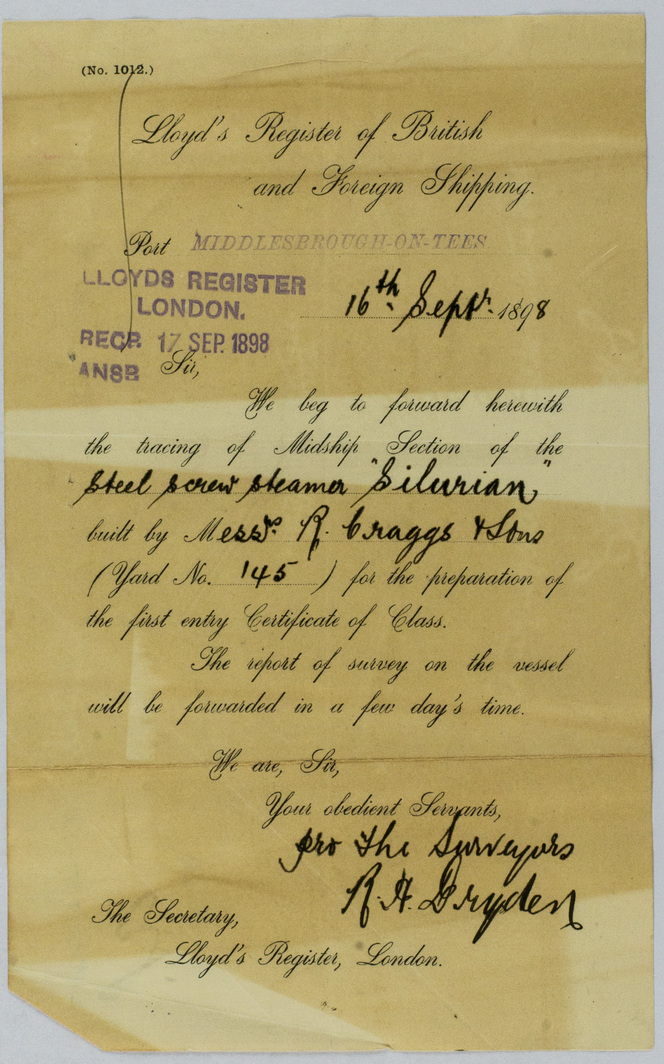 (No. 1012.)
Lloyd's Register of British
and Foreign Shipping.
Port MIDDLESBROUGH-ON-TEES
LLOYDS REGISTER
LONDON.
16th Septr. 1898
RECD 17 SEP. 1898
ANSD
Sir,
We beg to forward herewith
the tracing of Midship Section of the
Steel Screw Steamer "Silurian"
built by Messrs. R. Craggs & Sons
(Yard No. 145) for the preparation of
the first entry Certificate of Class.
The report of survey on the vessel
will be forwarded in a few day's time.
We are, Sir,
Your obedient Servants,
pro the Surveyors
R. H. Dryden
The Secretary,
Lloyd's Register, London.